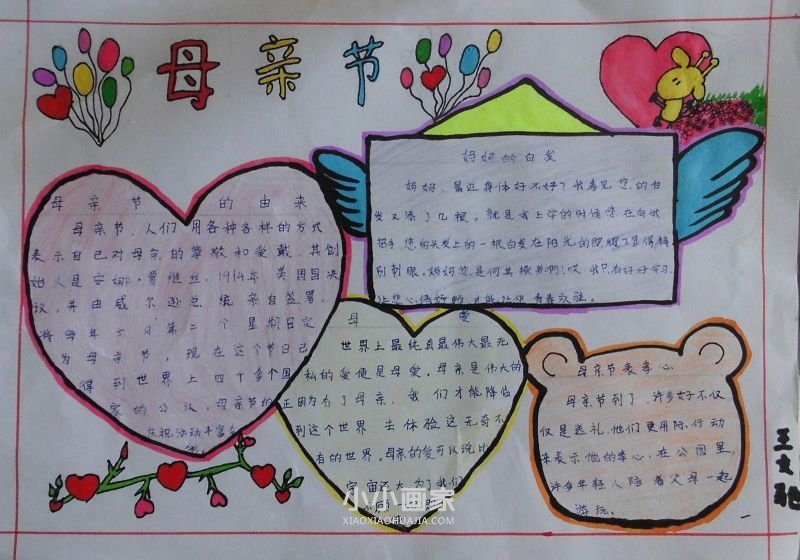 母亲节
母亲节的由来
母亲节,人们用各种各样的方式
表示自己对母亲的尊敬和爱戴,其创
始人是安娜·贾维丝,1914年,美国国决
议,并由威尔逊总统亲自签署,
将每年5月第二个星期日定
为母亲节,现在这个节日已
得到世界上四十多个国
家的公认,母亲节的
庆祝活动丰富多
妈妈的白发
妈妈,最近身体好不好?我看见您的白
发又添了几根。就是我上学的时候,您在向我
招手,您的头发上的一根白发在阳光的照耀下显得特
别刺眼,妈妈您是何其操劳啊!哎,我只有好好学习,
让您心情舒畅,才能让您青春永驻。
母爱
世界上最纯真最伟大最无
私的爱便是母爱,母亲是伟大的
正因为有了母亲,我们才能降临
到这个世界,去体验这无奇不
有的世界。母亲的爱可以说比
宇宙还大,为了我们
母亲节表孝心
母亲节到了,许多好不仅
仅是送礼,他们更用际行动
来表示他的孝心,在公园里,
许多年轻人陪着父母一起
游玩。
王文驰
小小画家
XIAOXIAOHUAJIA.COM